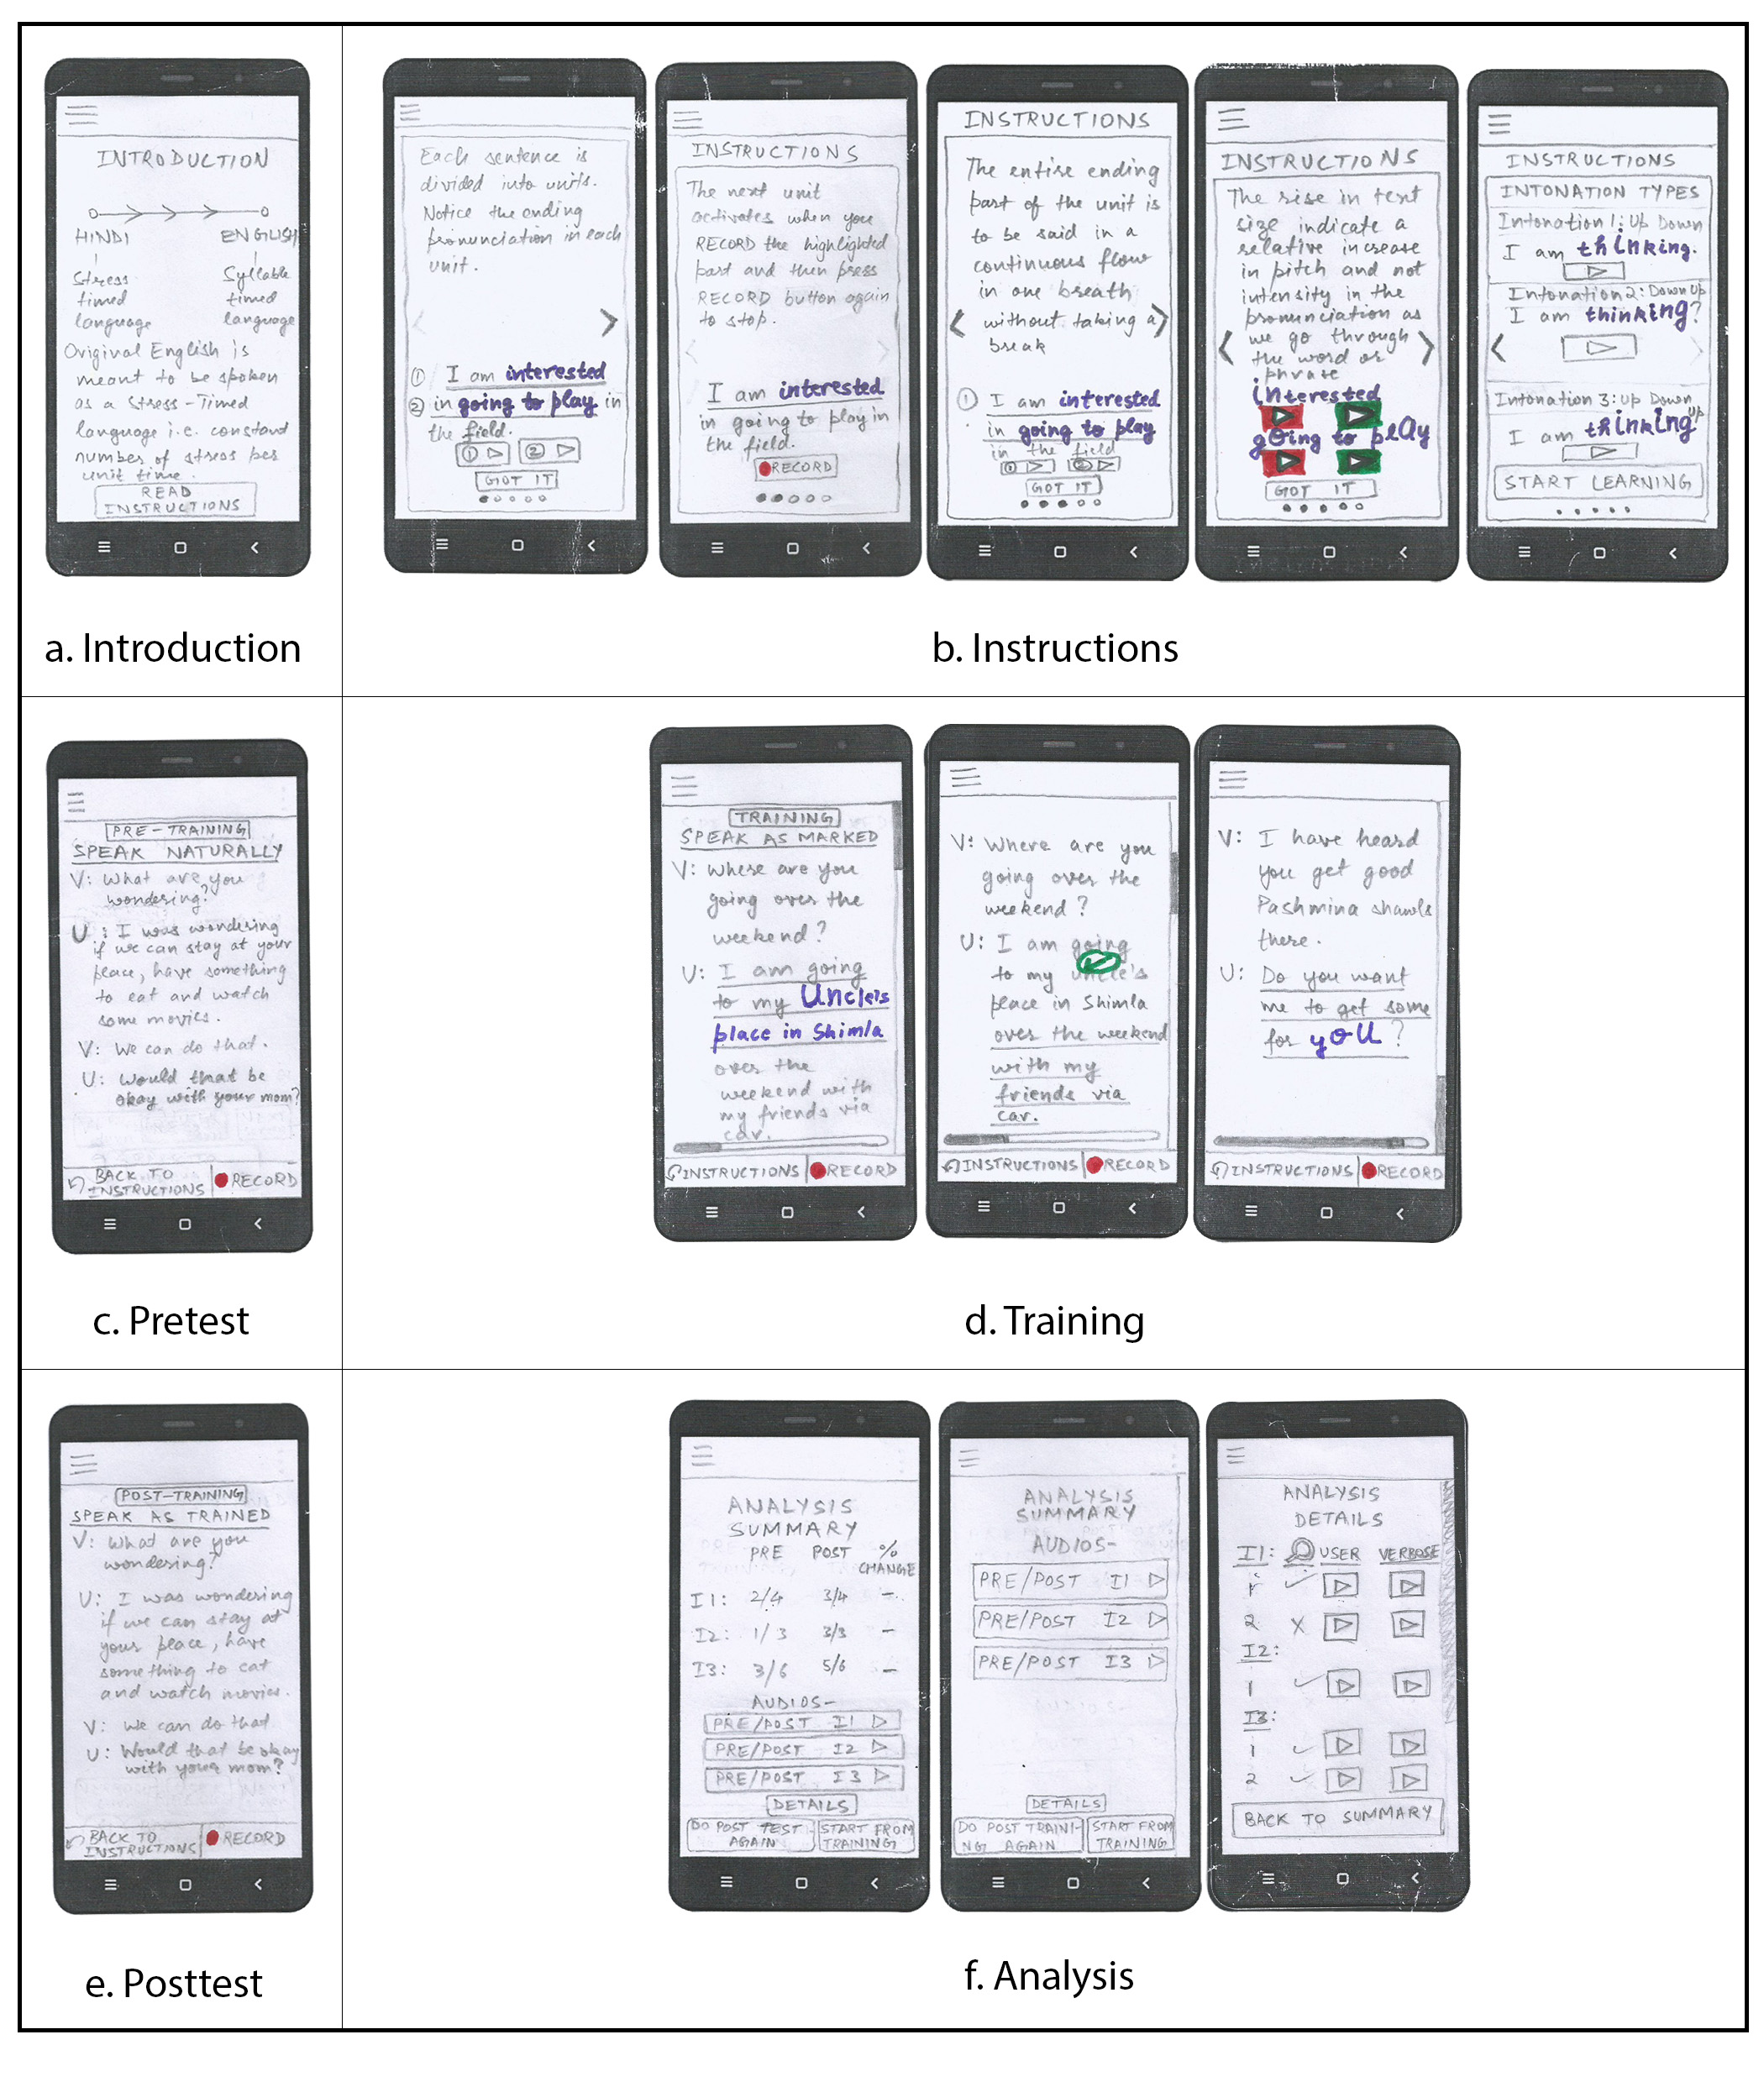 INTRODUCTION
HINDI ENGLISH
Stress Syllable
timed timed
language language
Original English is
meant to be spoken
as a Stress-Timed
language i.e. constant
number of stress per
unit time.
READ
INSTRUCTIONS
a. Introduction
Each sentence is
divided into units.
Notice the ending
pronunciation in each
unit.
① I am interested
② in going to play in
the field.
① ②
GOT IT
INSTRUCTIONS
The next unit
activates when you
RECORD the highlighted
part and then press
RECORD button again
to stop.
I am interested
in going to play in
the field.
RECORD
INSTRUCTIONS
The entire ending
part of the unit is
to be said in a
continuous flow
in one breath
without taking a
break
① I am interested
in going to play
in the field
① ②
GOT IT
INSTRUCTIONS
The rise in text
size indicate a
relative increase
in pitch and not
intensity in the
pronunciation as
we go through
the word or
phrase
interested
going to play
GOT IT
INSTRUCTIONS
INTONATION TYPES
Intonation 1: Up Down
I am thinking.
Intonation 2: Down Up
I am thinking?
Intonation 3: Up Down Up
I am thinking
START LEARNING
b. Instructions
PRE-TRAINING
SPEAK NATURALLY
V: What are you
wondering?
U: I was wondering
if we can stay at your
place, have something
to eat and watch
some movies.
V: We can do that.
U: Would that be
okay with your mom?
BACK TO
INSTRUCTIONS
RECORD
c. Pretest
TRAINING
SPEAK AS MARKED
V: Where are you
going over the
weekend?
U: I am going
to my Uncle's
place in Shimla
over the
weekend with
my friends via
car.
INSTRUCTIONS RECORD
V: Where are you
going over the
weekend?
U: I am going
to my uncle's
place in Shimla
over the weekend
with my
friends via
car.
INSTRUCTIONS RECORD
V: I have heard
you get good
Pashmina shawls
there.
U: Do you want
me to get some
for you?
INSTRUCTIONS RECORD
d. Training
POST-TRAINING
SPEAK AS TRAINED
V: What are you
wondering?
U: I was wondering
if we can stay at
your place, have
something to eat
and watch movies.
V: We can do that
U: Would that be okay
with your mom?
BACK TO
INSTRUCTIONS
RECORD
e. Posttest
ANALYSIS
SUMMARY
PRE POST %
CHANGE
I1: 2/4 3/4 –
I2: 1/3 3/3 –
I3: 3/6 5/6 –
AUDIOS-
PRE/POST I1
PRE/POST I2
PRE/POST I3
DETAILS
DO POST TEST
AGAIN
START FROM
TRAINING
ANALYSIS
SUMMARY
AUDIOS-
PRE/POST I1
PRE/POST I2
PRE/POST I3
DETAILS
DO POST TRAINI-
NG AGAIN
START FROM
TRAINING
ANALYSIS
DETAILS
I1: USER VERBOSE
1
2
I2:
1
I3:
1
2
BACK TO SUMMARY
f. Analysis